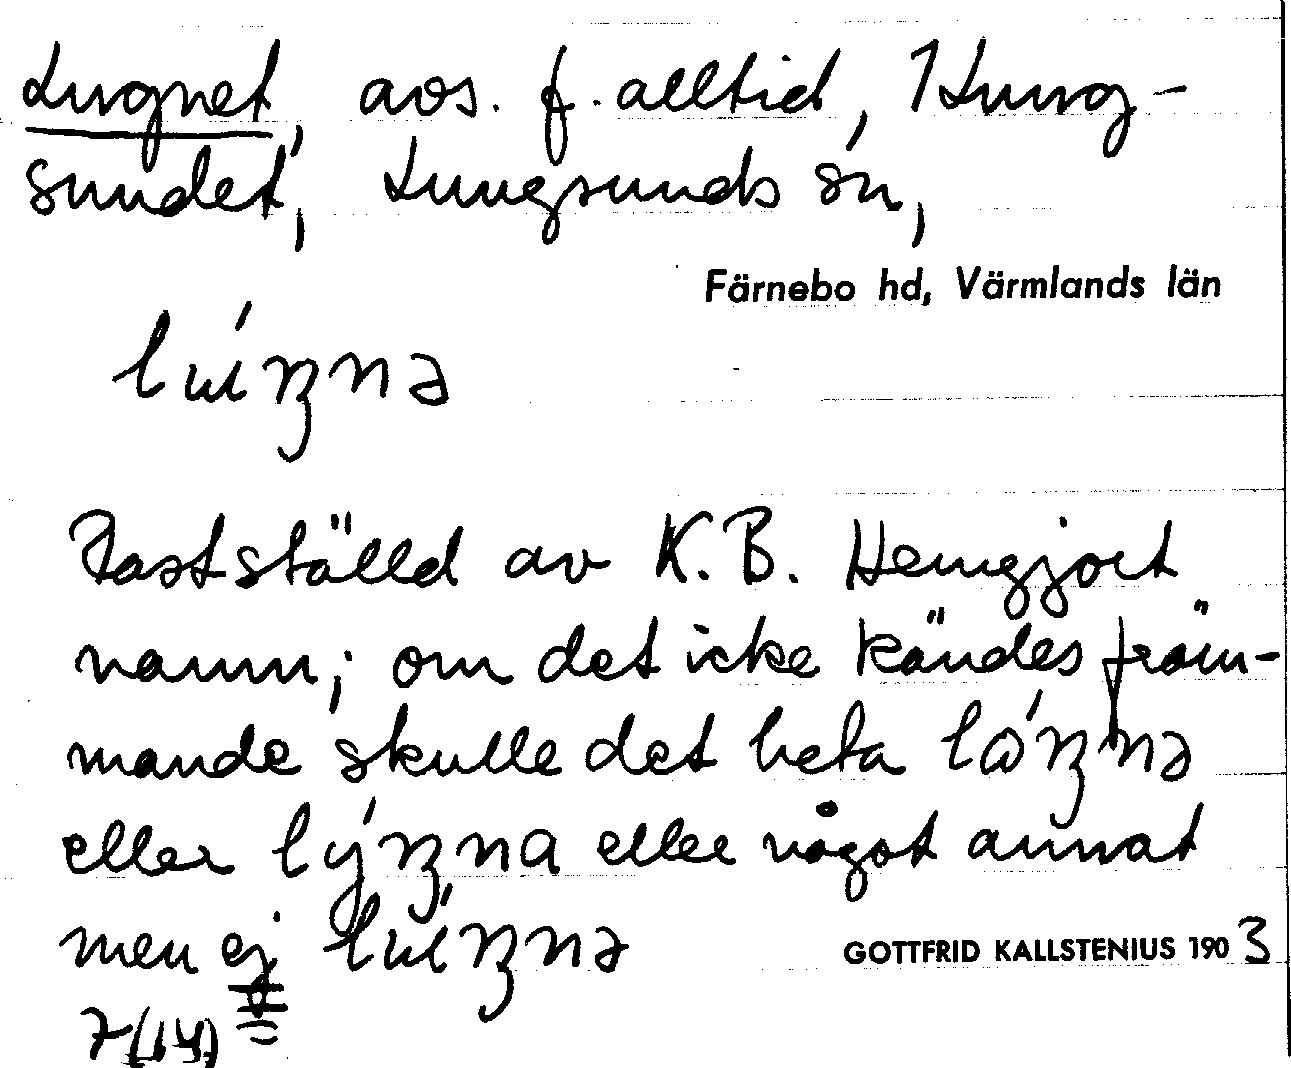 Lugnet, avs. f. alltid, 1 Lung-
sundet, Lungsunds sn,
Färnebo hd, Värmlands län
Fastställd av K.B. Hemgjort
namn; om det icke kändes främ-
mande skulle det heta
eller eller något annat
men ej
GOTTFRID KALLSTENIUS 1903